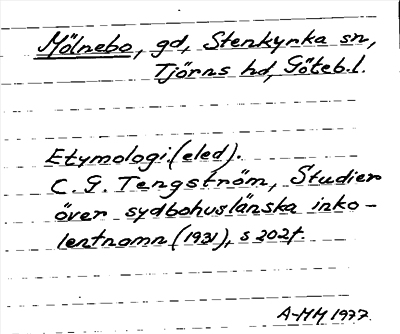 Mölnebo, gd, Stenkyrka sn,
Tjörns hd, Göteb.l.
Etymologi.(eled).
C. G. Tengström, Studier
över sydbohuslänska inko-
lentnamn (1931), s 202f.
A-MM 1977.